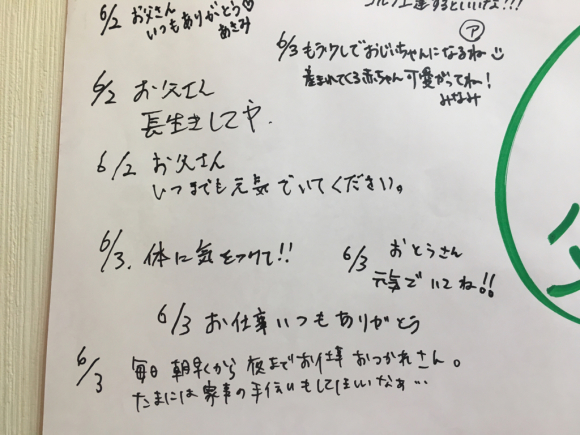 ゴルフ上達するといいな!!!
6/2 お父さん
いつもありがとう♡
あさみ
ア
6/3 もう少しでおじいちゃんになるね
産まれてくる赤ちゃん可愛がってね!
みなみ
6/2 お父さん
長生きしてや.
6/2 お父さん
いつまでも元気でいてください。
6/3. 体に気をつけて!!
6/3 おとうさん
元気でいてね!!
6/3 お仕事いつもありがとう
6/3 毎日 朝早くから 夜までお仕事 おつかれさん。
たまには家事の手伝いもしてほしいなぁ…
父